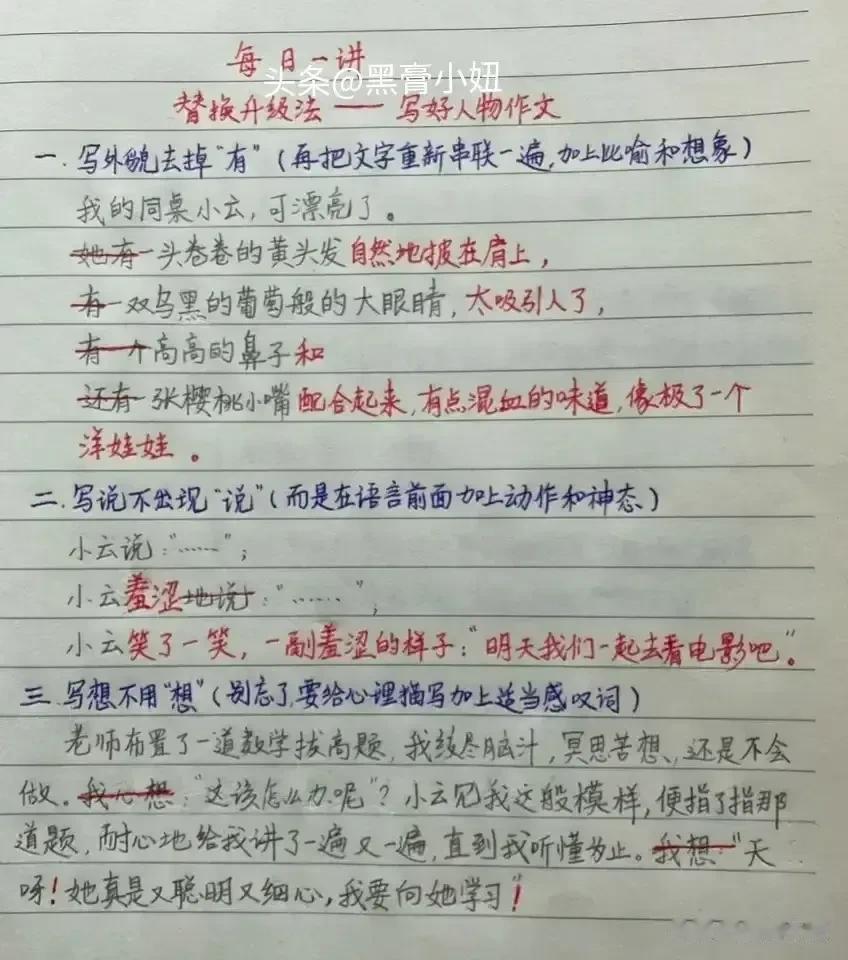 每日一讲
头条@黑膏小妞
替换升级法——写好人物作文
一.写外貌去掉"有"(再把文字重新串联一遍,加上比喻和想象)
我的同桌小云,可漂亮了。
她有一头卷卷的黄头发自然地披在肩上,
有一双乌黑的葡萄般的大眼睛,太吸引人了,
有一个高高的鼻子和
还有一张樱桃小嘴配合起来,有点混血的味道,像极了一个
洋娃娃。
二.写说不出现"说"(而是在语言前面加上动作和神态)
小云说:"……";
小云羞涩地说:"……";
小云笑了一笑,一副羞涩的样子:"明天我们一起去看电影吧"。
三.写想不用"想"(别忘了,要给心理描写加上适当感叹词)
老师布置了一道数学拔高题,我绞尽脑汁,冥思苦想,还是不会
做。我心想:"这该怎么办呢"?小云见我这般模样,便指了指那
道题,耐心地给我讲了一遍又一遍,直到我听懂为止。我想:"天
呀!她真是又聪明又细心,我要向她学习"!